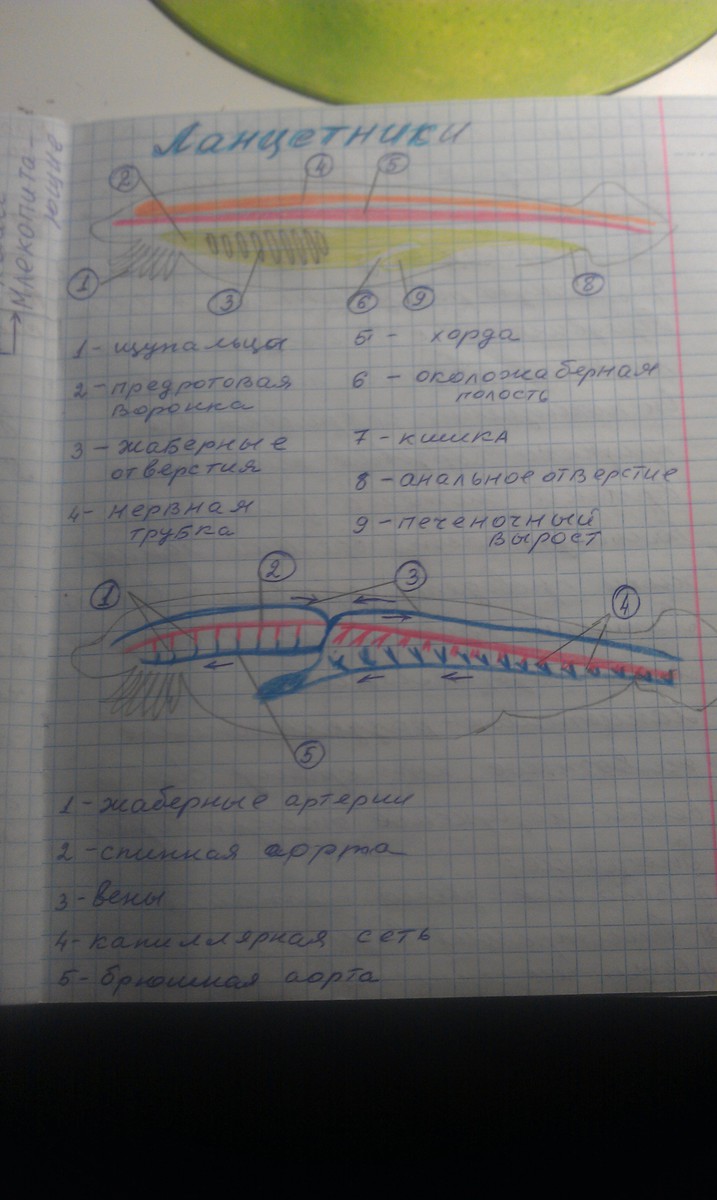 → Млекопита-
ющие
Ланцетники
2 4 5
1 3 6 9 8
1 - щупальцы
2 - предротовая
воронка
3 - жаберные
отверстия
4 - нервная
трубка
5 - хорда
6 - околожаберная
полость
7 - кишка
8 - анальное отверстие
9 - печеночный
вырост
1 2 3 4
5
1 - жаберные артерии
2 - спинная аорта
3 - вены
4 - капиллярная сеть
5 - брюшная аорта